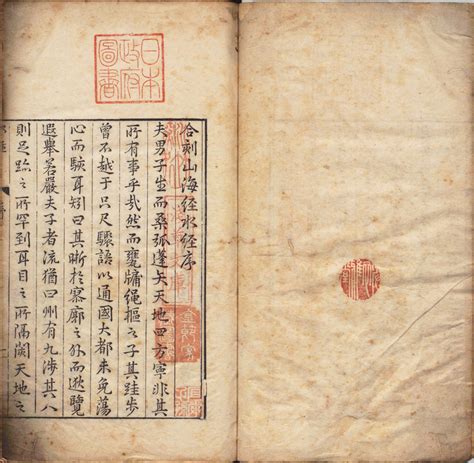 日本
政府
圖書
合刻山海經水經序
夫男子生而桑弧蓬矢天地四方寧非其
所有事乎哉然而甕牖繩樞之子其跬步
曾不越于只尺驟語以通國大都未免蕩
心而駭耳矧曰其晰於寥廓之外而遐覽
遐舉若嚴夫子者流猶曰州有九涉其八
則足跡之所罕到耳目之所隔閡天地之